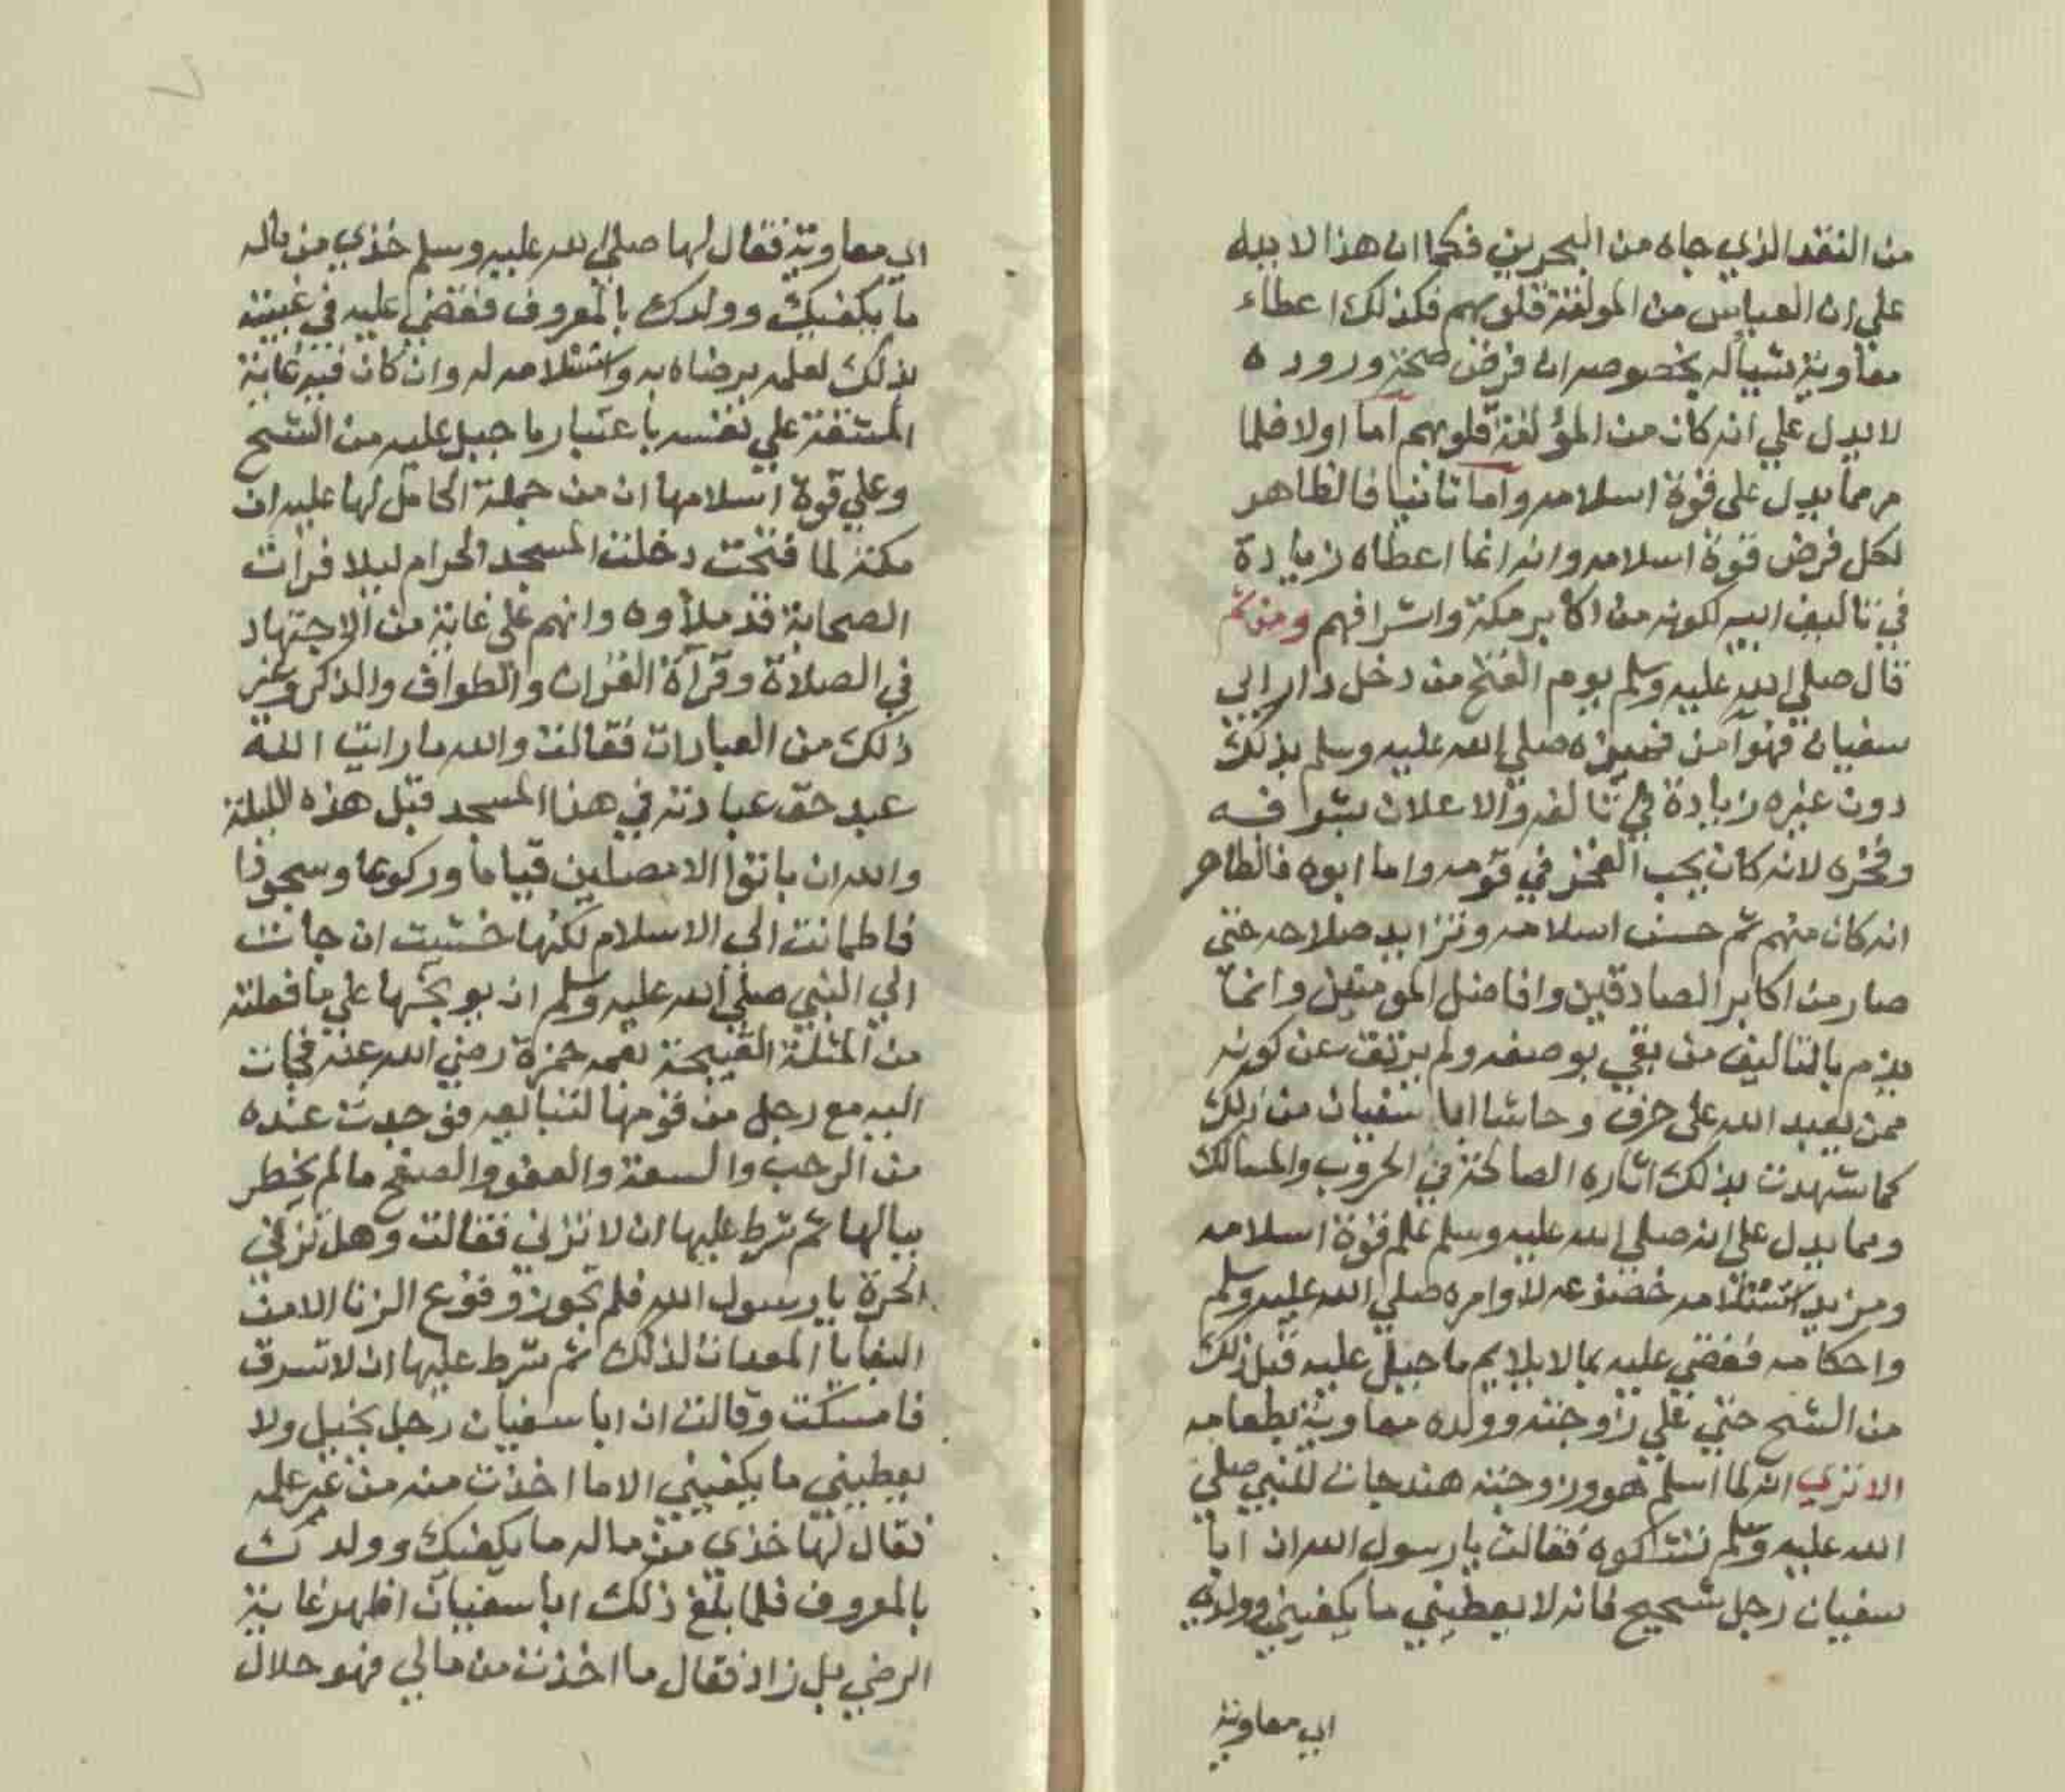 من النقد الذي جاه من البحرين فكما ان هذا لا يدل
علي ان العباس من المولفة قلوبهم فكذلك اعطاء
معاوية شيأ له بخصوصه ان فرض صحة وروده
لا يدل علي انه كان من المؤلفة قلوبهم اما اولا فلما
مر مما يدل على قوة اسلامه واما ثانيا فالظاهر
لكل فرض قوة اسلامه وانه انما اعطاه زيادة
في تاليف ابيه لكونه من اكابر مكة واشرافهم ومن ثم
قال صلي الله عليه وسلم يوم الفتح من دخل دار ابي
سفيان فهو آمن فميزه صلي الله عليه وسلم بذلك
دون غيره زيادة في تالفه والاعلان بشرافه
وفخره لانه كان يحب الفخر في قومه واما ابوه فالظاهر
انه كان منهم ثم حسن اسلامه وتزايد صلاحه حتى
صار من اكابر الصادقين وافاضل المومنين وانما
يذم بالتاليف من بقي بوصفه ولم يرتق عن كونه
ممن يعبد الله على حرف وحاشا ابا سفيان من ذلك
كما شهدت بذلك اثاره الصالحة في الحروب والمسالك
ومما يدل على انه صلي الله عليه وسلم علم قوة اسلامه
ومزيد استسلامه خضوعه لاوامره صلي الله عليه وسلم
واحكامه فقضي عليه بما لا يلايم ما جبل عليه قبل ذلك
من الشح حتي علي زوجته وولده معاوية بطعامه
الا تري انه لما اسلم هو وزوجته هند جات للنبي صلي
الله عليه وسلم تشتكوه فقالت يا رسول الله ان ابا
سفيان رجل شحيح فانه لا يعطيني ما يكفيني وولده
اي معاوية
اي معاوية فقال لها صلي الله عليه وسلم خذي من ماله
ما يكفيك وولدك بالمعروف فقضي عليه في غيبته
بذلك لعلمه برضاه به واستسلامه له وان كان فيه غاية
المشقة علي نفسه باعتبار ما جبل عليه من الشح
وعلي قوة اسلامها ان من جملة الحامل لها عليه ان
مكة لما فتحت دخلت المسجد الحرام ليلا فرات
الصحابة قد ملأوه وانهم على غاية من الاجتهاد
في الصلاة وقرآة القران والطواف والذكر وغير
ذلك من العبادات فقالت والله ما رايت الله
عبد حق عبادته في هذا المسجد قبل هذه الليلة
والله ان باتوا الا مصلين قياما وركوعا وسجودا
فاطمانت الى الاسلام لكنها خشيت ان جات
الي النبي صلي الله عليه وسلم ان يوبخها علي ما فعلته
من المثلة القبيحة بعمه حمزة رضي الله عنه فجات
اليه مع رجل من قومها لتبايعه فوجدت عنده
من الرحب والسعة والعفو والصفح ما لم يخطر
ببالها ثم شرط عليها ان لا تزني فقالت وهل تزني
الحرة يا رسول الله فلم تجوز وقوع الزنا الا من
البغايا المعدات لذلك ثم شرط عليها ان لا تسرق
فامسكت وقالت ان ابا سفيان رجل بخيل ولا
يعطيني ما يكفيني الا ما اخذت منه من غير علمه
فقال لها خذي من ماله ما يكفيك وولدك
بالمعروف فلما بلغ ذلك ابا سفيان اظهر غاية
الرضي بل زاد فقال ما اخذت من مالي فهو حلال